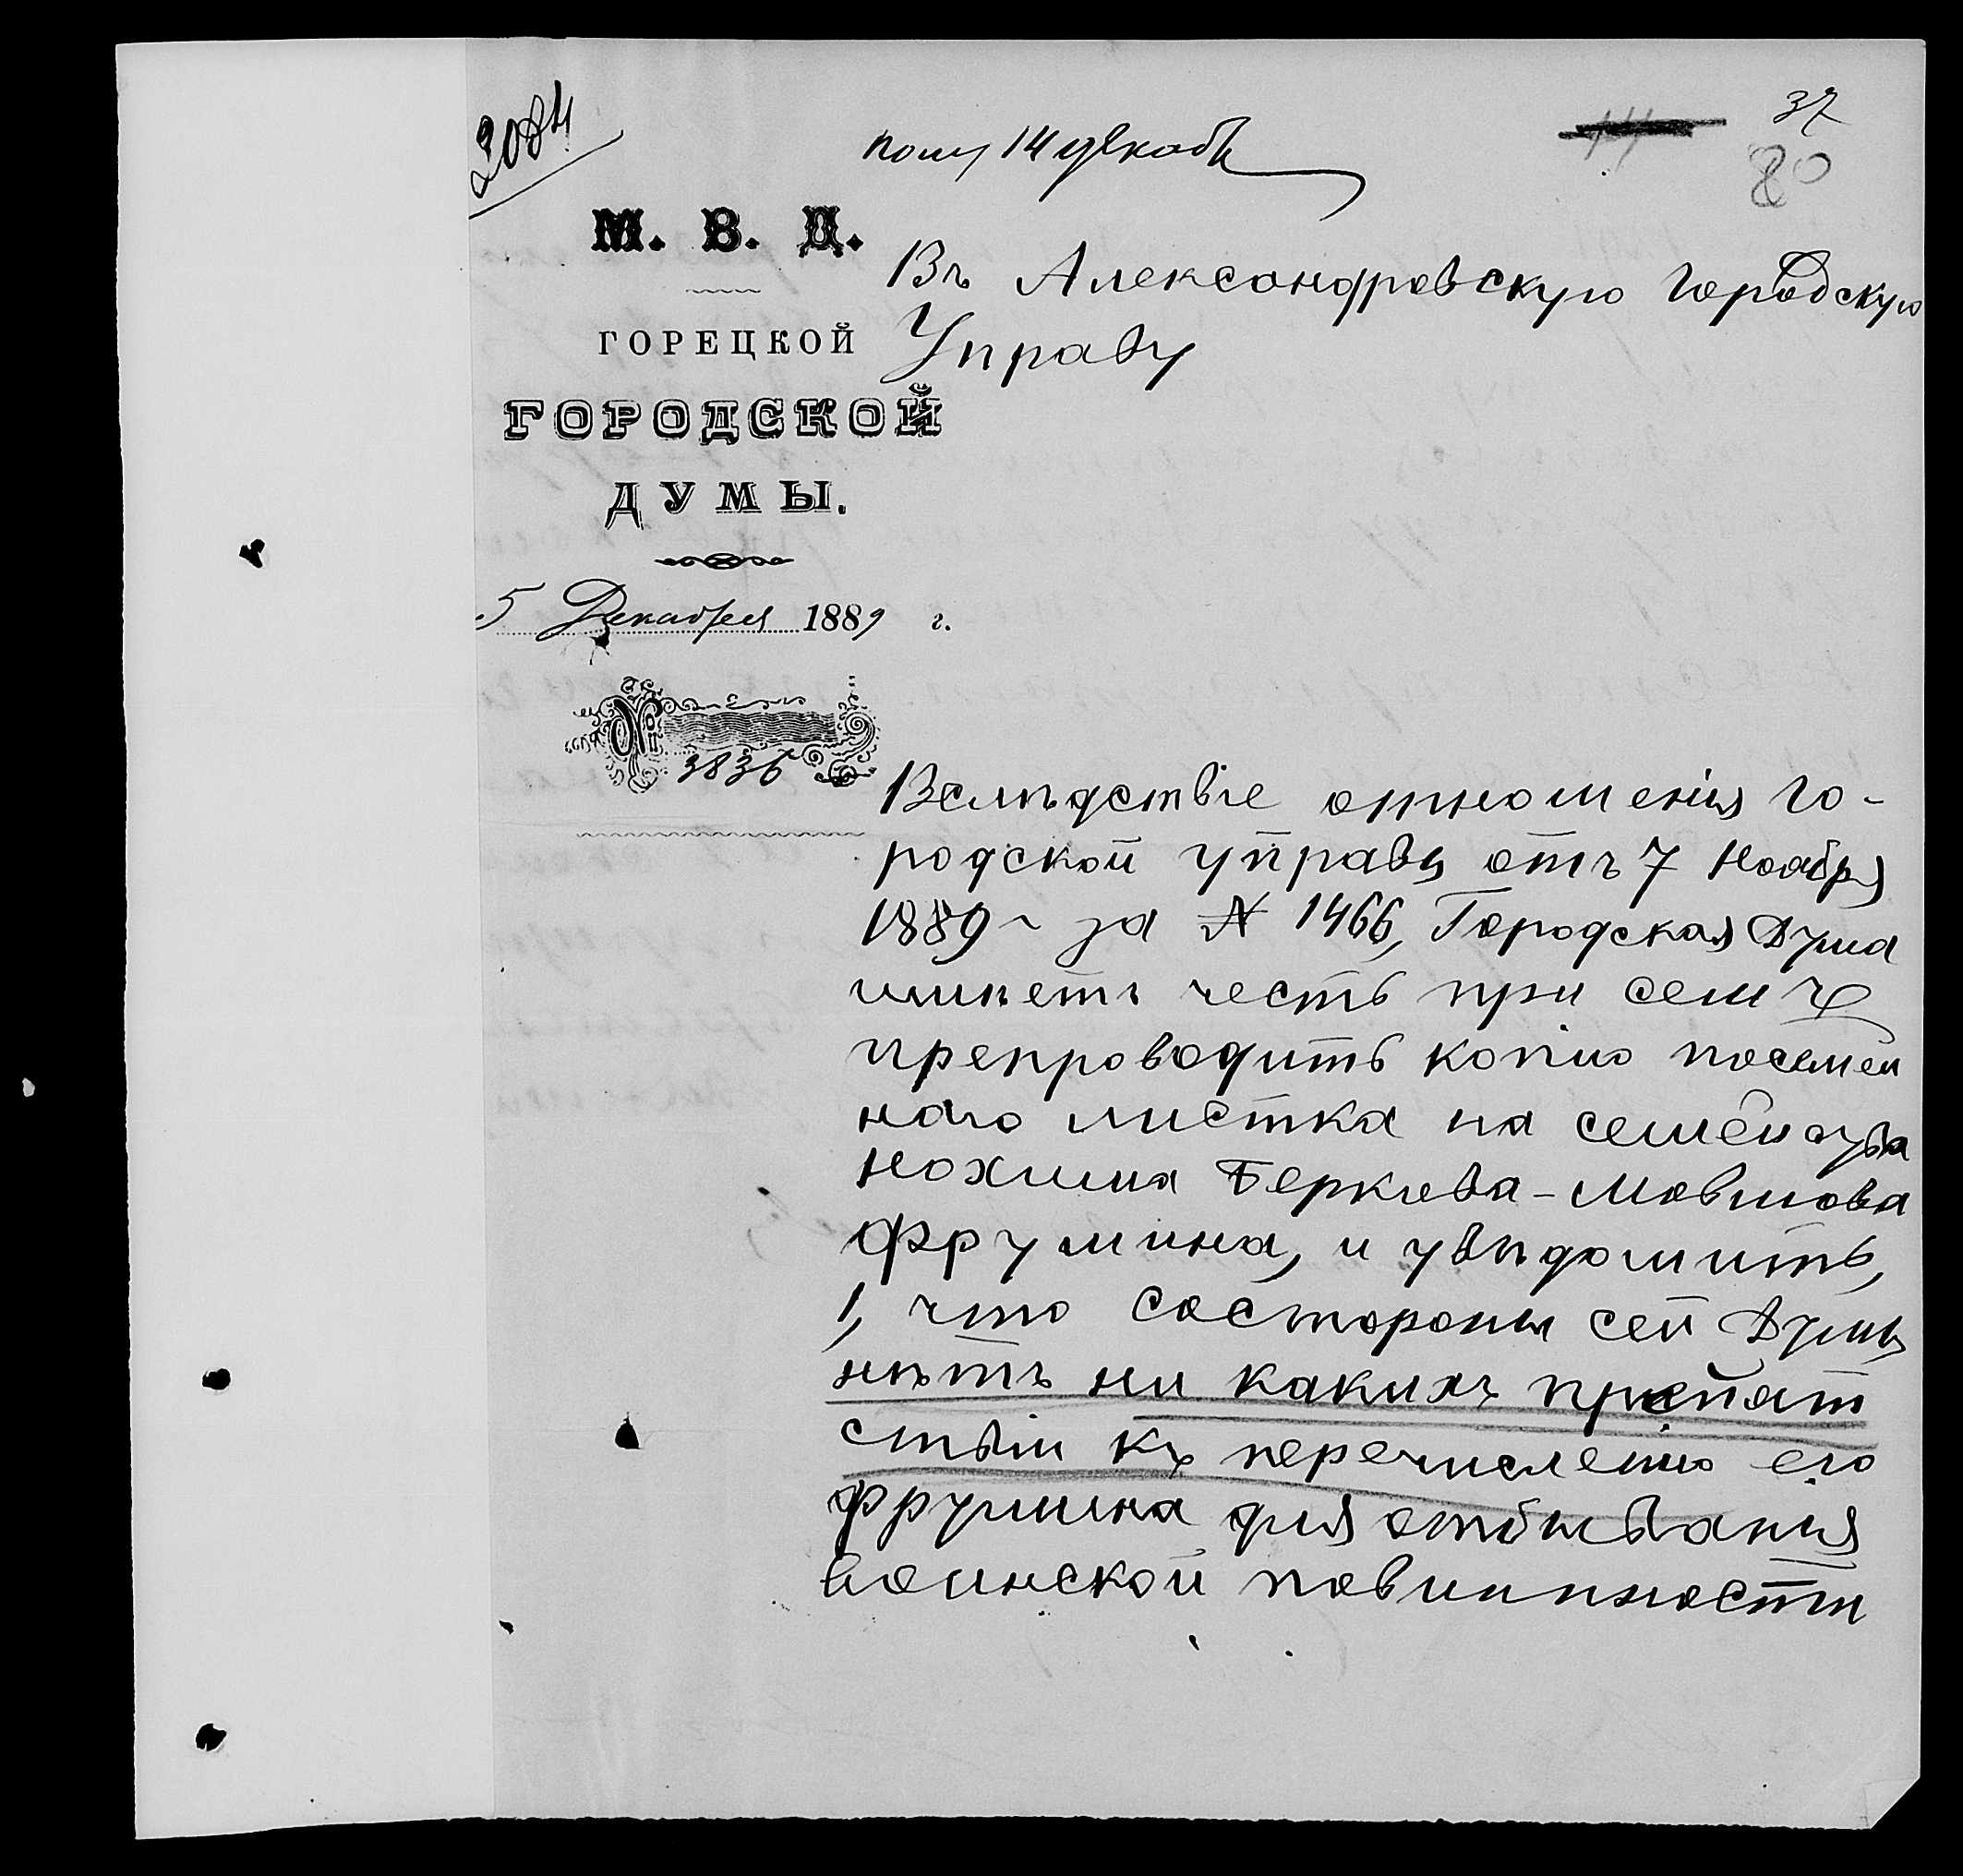 2084
полу 14 декаб
37
80
М. В. Д.
ГОРЕЦКОЙ
ГОРОДСКОЙ
ДУМЫ.
5 Декабря 1889 г.
№ 3836
Въ Александровскую Городскую
Управу
Вслѣдствіе отношенія Го-
родской управы отъ 7 Ноября
1889 г за № 1466, Городская Дума
имѣетъ честь при семъ
препроводить копію посемей
наго листка на семейства
Нохима Беркова-Мовшова
Фрумина, и увѣдомить,
1, что состороны сей Думы
нѣтъ ни какихъ препят
ствій къ перечисленію его
Фрумина для отбыванія
воинской повинности